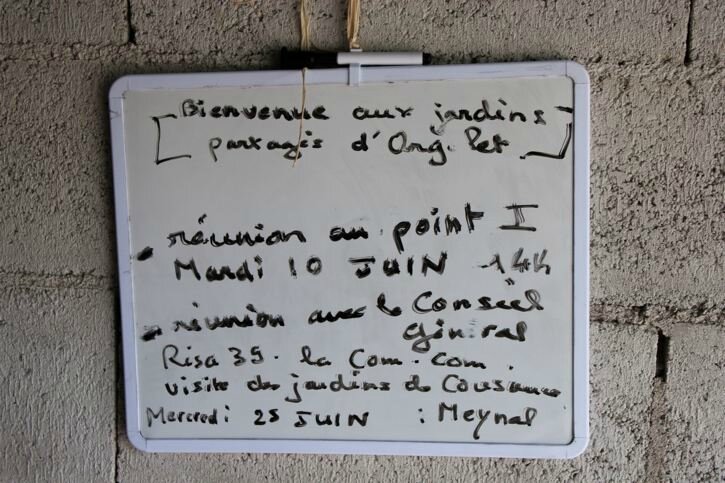 Bienvenue aux jardins
partagés d'Org. Pet.
- réunion au point I
Mardi 10 JUIN 14h
- réunion avec le Conseil
général
Risa 39. la Com. com.
visite des jardins de Cousance
Mercredi 25 JUIN : Meynal